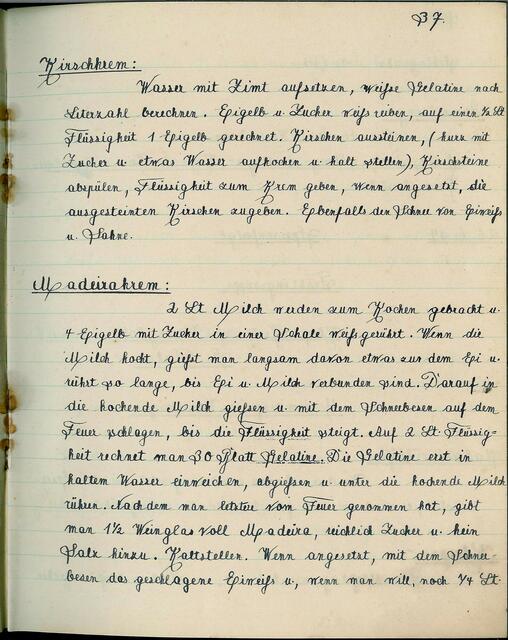 37.
Kirschkrem:
Wasser mit Zimt aufsetzen, weiße Gelatine nach
Literzahl berechnen. Eigelb u Zucker weiß reiben, auf einen ½ Lt
Flüssigkeit 1 Eigelb gerechnet. Kirschen aussteinen, (kurz mit
Zucker u. etwas Wasser aufkochen u. kalt stellen), Kirschsteine
abspülen, Flüssigkeit zum Krem geben, wenn angesetzt, die
ausgesteinten Kirschen zugeben. Ebenfalls den Schnee von Eiweiß
u. Sahne.
Madeirakrem:
2 Lt Milch werden zum Kochen gebracht u.
4 Eigelb mit Zucker in einer Schale weiß gerührt. Wenn die
Milch kocht, gießt man langsam davon etwas zur dem Ei u.
rührt so lange, bis Ei u. Milch verbunden sind. Darauf in
die kochende Milch gießen u. mit dem Schneebesen auf dem
Feuer schlagen, bis die Flüssigkeit steigt. Auf 2 Lt. Flüssig-
keit rechnet man 30 Blatt Gelatine. Die Gelatine erst in
kaltem Wasser einweichen, abgießen u. unter die kochende Milch
rühren. Nachdem man letztere vom Feuer genommen hat, gibt
man 1½ Weinglas voll Madeira, reichlich Zucker u. kein
Salz hinzu. Kaltstellen. Wenn angesetzt, mit dem Schnee-
besen das geschlagene Eiweiß u, wenn man will, noch ¼ Lt.